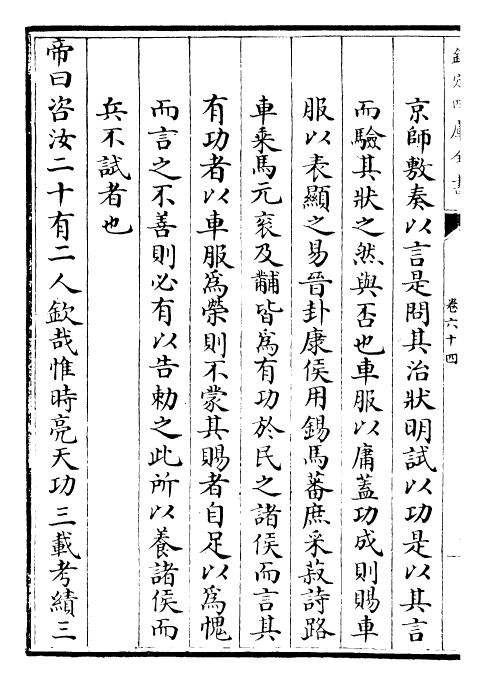 欽定四庫全書
卷六十四
京師敷奏以言是問其治狀明試以功是以其言
而驗其狀之然與否也車服以庸蓋功成則賜車
服以表顯之易晉卦康侯用錫馬蕃庶采菽詩路
車乘馬元衮及黼皆為有功於民之諸侯而言其
有功者以車服為榮則不蒙其賜者自足以為愧
而言之不善則必有以告勅之此所以養諸侯而
兵不試者也
帝曰咨汝二十有二人欽哉惟時亮天功三載考績三